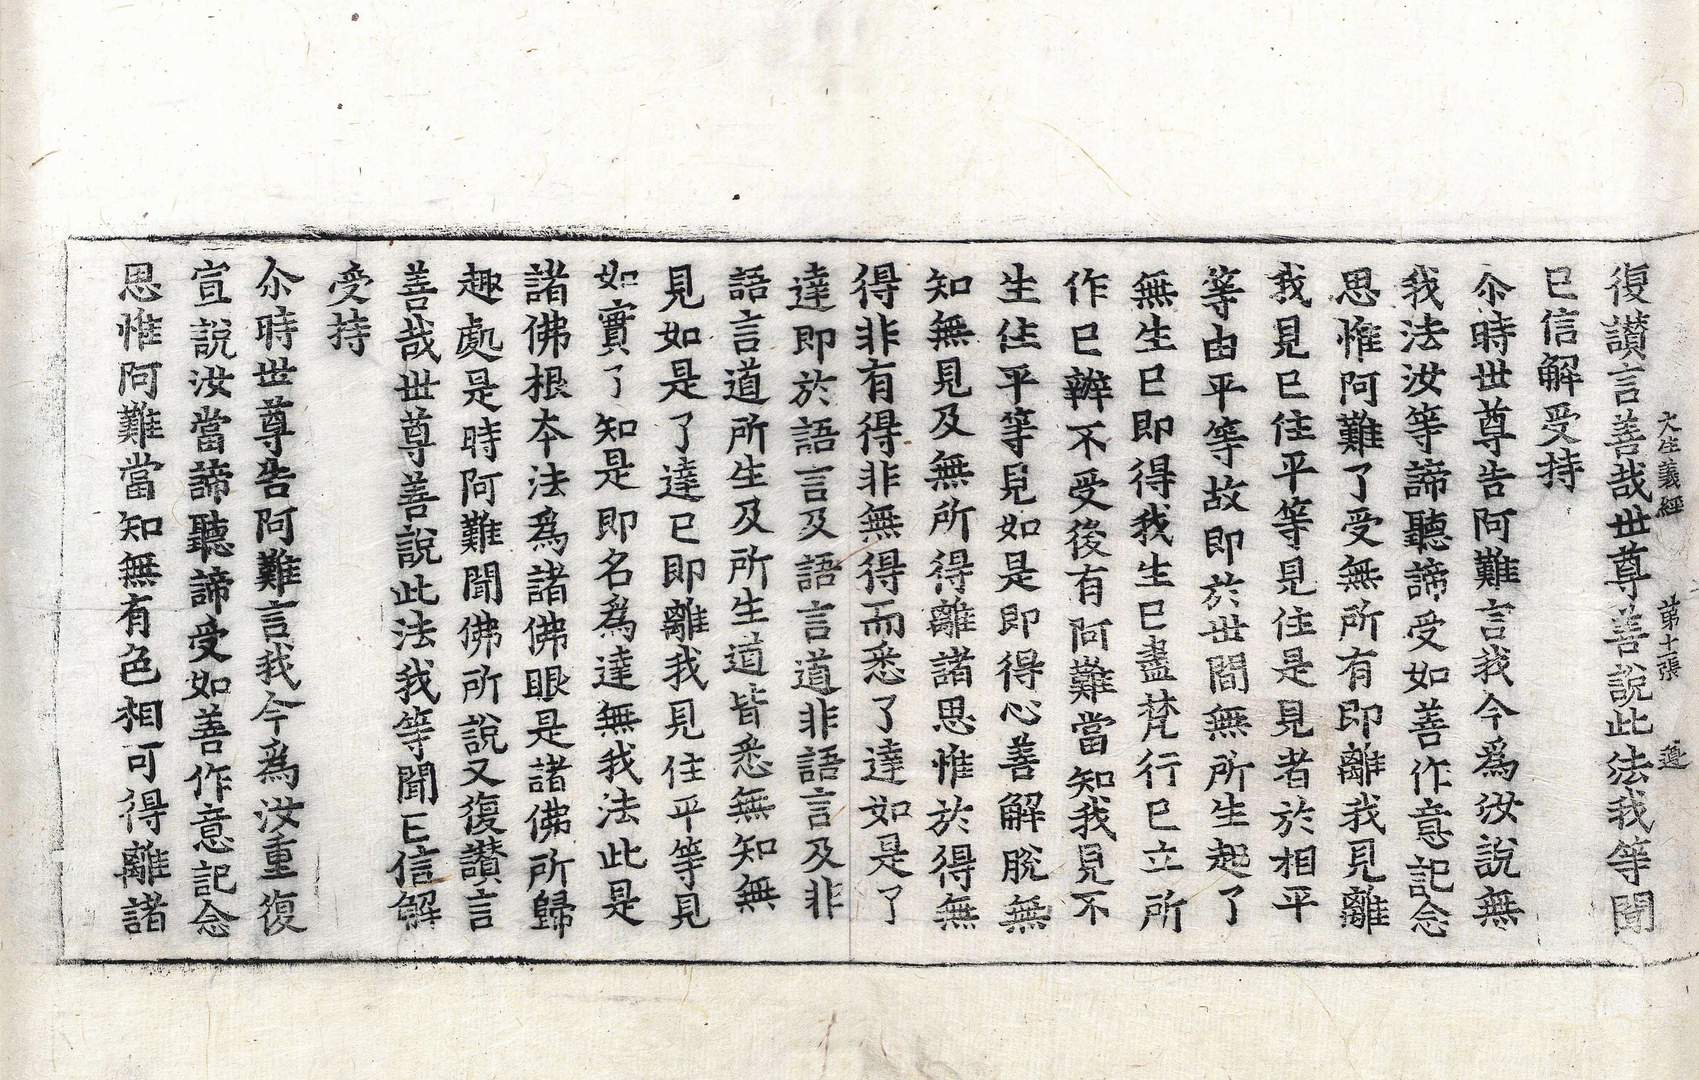 大生義經 第十張 邉
復讃言善哉世尊善說此法我等聞
已信解受持
尒時世尊告阿難言我今爲汝說無
我法汝等諦聽諦受如善作意記念
思惟阿難了受無所有即離我見離
我見已住平等見住是見者於相平
等由平等故即於世間無所生起了
無生已即得我生已盡梵行已立所
作已辦不受後有阿難當知我見不
生住平等見如是即得心善解脫無
知無見及無所得離諸思惟於得無
得非有得非無得而悉了達如是了
達即於語言及語言道非語言及非
語言道所生及所生道皆悉無知無
見如是了達已即離我見住平等見
如實了知是即名爲達無我法此是
諸佛根本法爲諸佛眼是諸佛所歸
趣處是時阿難聞佛所說又復讃言
善哉世尊善說此法我等聞已信解
受持
尒時世尊告阿難言我今爲汝重復
宣說汝當諦聽諦受如善作意記念
思惟阿難當知無有色相可得離諸